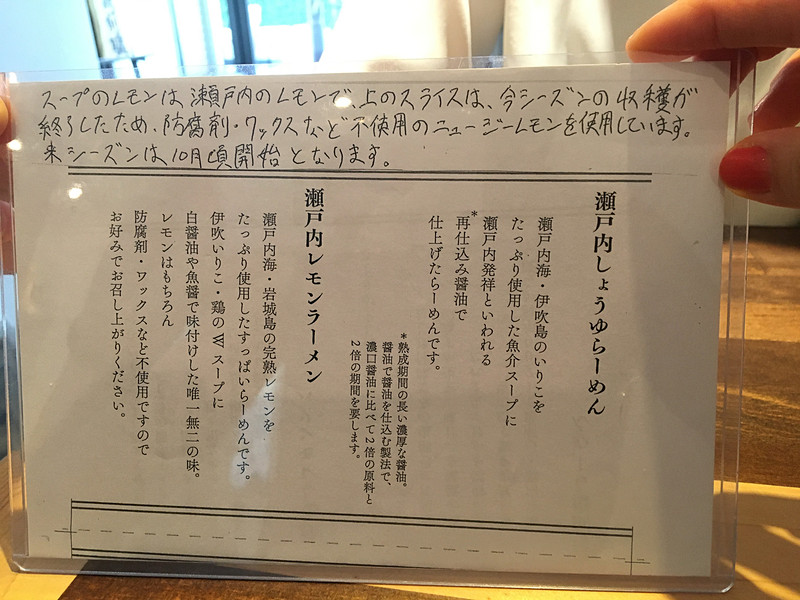 スープのレモンは、瀬戸内のレモンで、上のスライスは、今シーズンの収穫が
終了したため、防腐剤・ワックスなど不使用のニュージーレモンを使用しています。
来シーズンは、10月頃開始となります。
瀬戸内しょうゆらーめん
瀬戸内海・伊吹島のいりこを
たっぷり使用した魚介スープに
瀬戸内発祥といわれる
*再仕込み醤油で
仕上げたらーめんです。
*熟成期間の長い濃厚な醤油。
醤油で醤油を仕込む製法で、
濃口醤油に比べて2倍の原料と
2倍の期間を要します。
瀬戸内レモンラーメン
瀬戸内海・岩城島の完熟レモンを
たっぷり使用したすっぱいらーめんです。
伊吹いりこ・鶏のWスープに
白醤油や魚醤で味付けした唯一無二の味。
レモンはもちろん
防腐剤・ワックスなど不使用ですので
お好みでお召し上がりください。